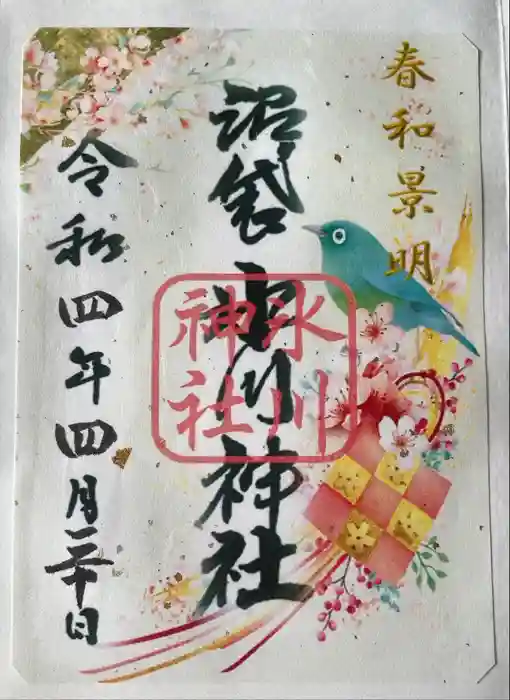 春和景明
沼袋氷川神社
氷川
神社
令和四年四月二十日